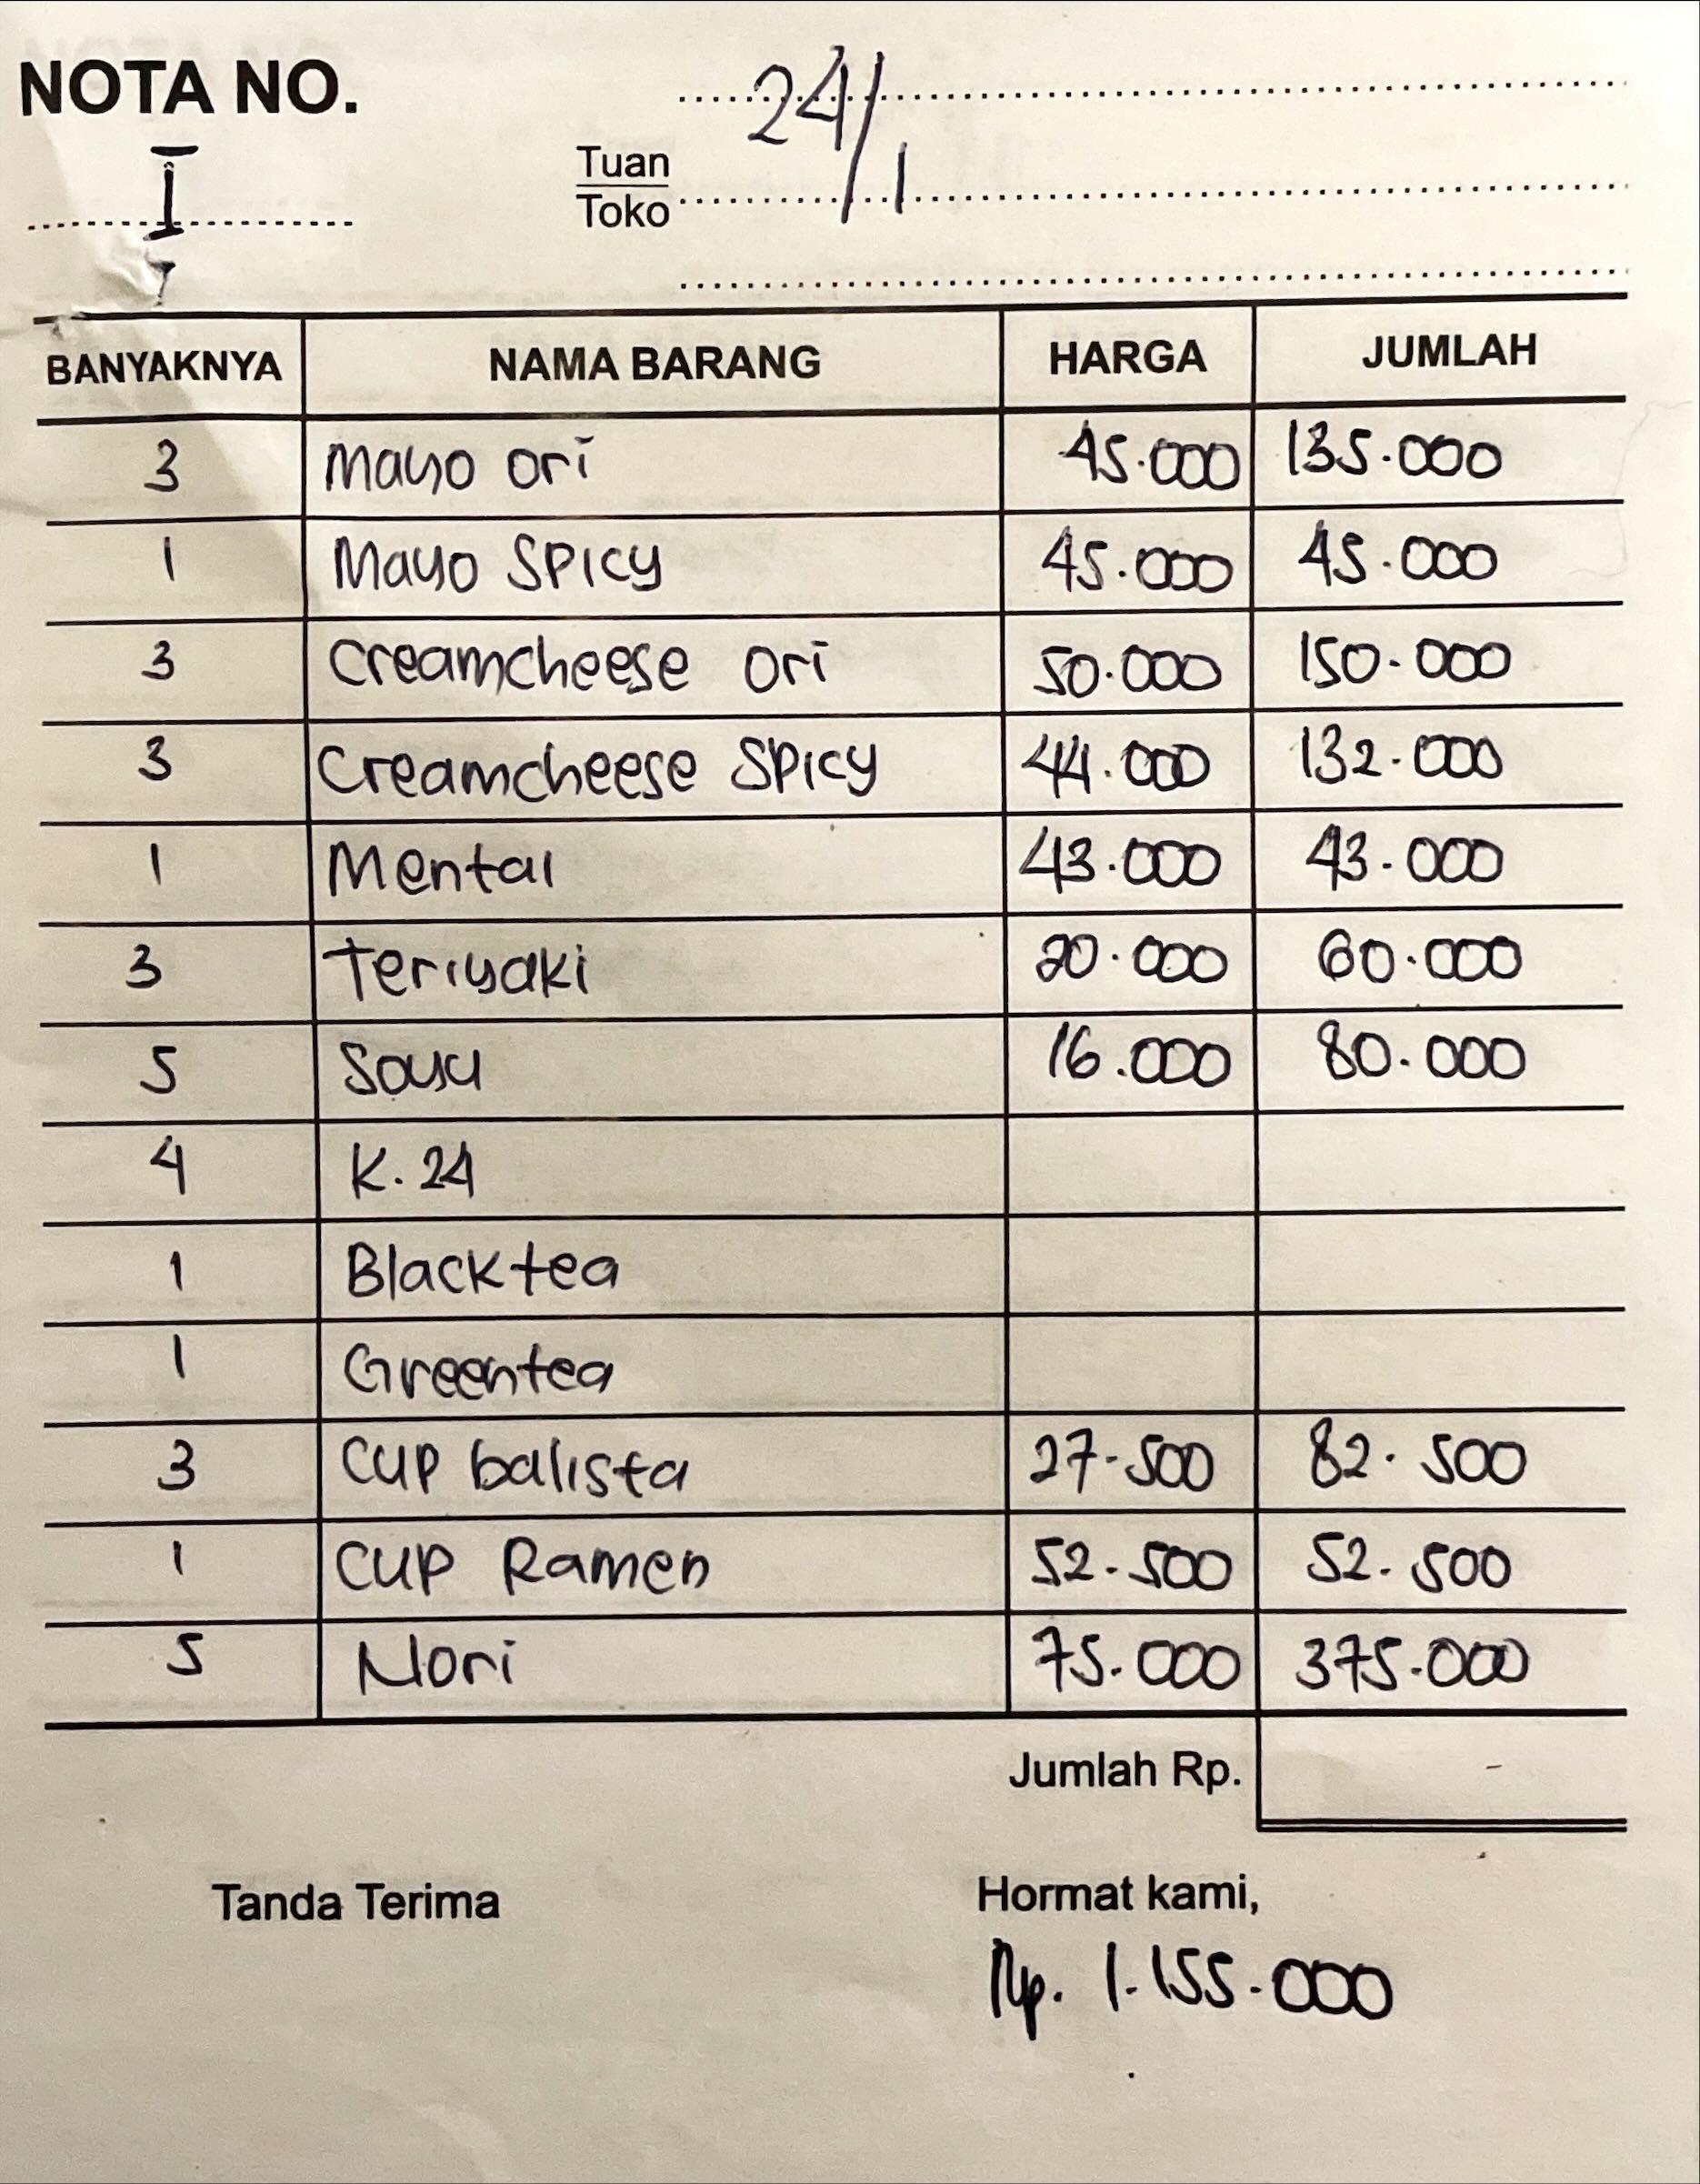 NOTA NO.
I
24/1
Tuan
Toko
BANYAKNYA NAMA BARANG HARGA JUMLAH
3 Mayo ori 45.000 135.000
1 Mayo Spicy 45.000 45.000
3 Creamcheese ori 50.000 150.000
3 Creamcheese Spicy 44.000 132.000
1 Mentai 43.000 43.000
3 Teriyaki 20.000 60.000
5 Soyu 16.000 80.000
4 K.24
1 Blacktea
1 Greentea
3 Cup balista 27.500 82.500
1 Cup Ramen 52.500 52.500
5 Nori 75.000 375.000
Jumlah Rp. -
Tanda Terima Hormat kami,
Rp. 1.155.000